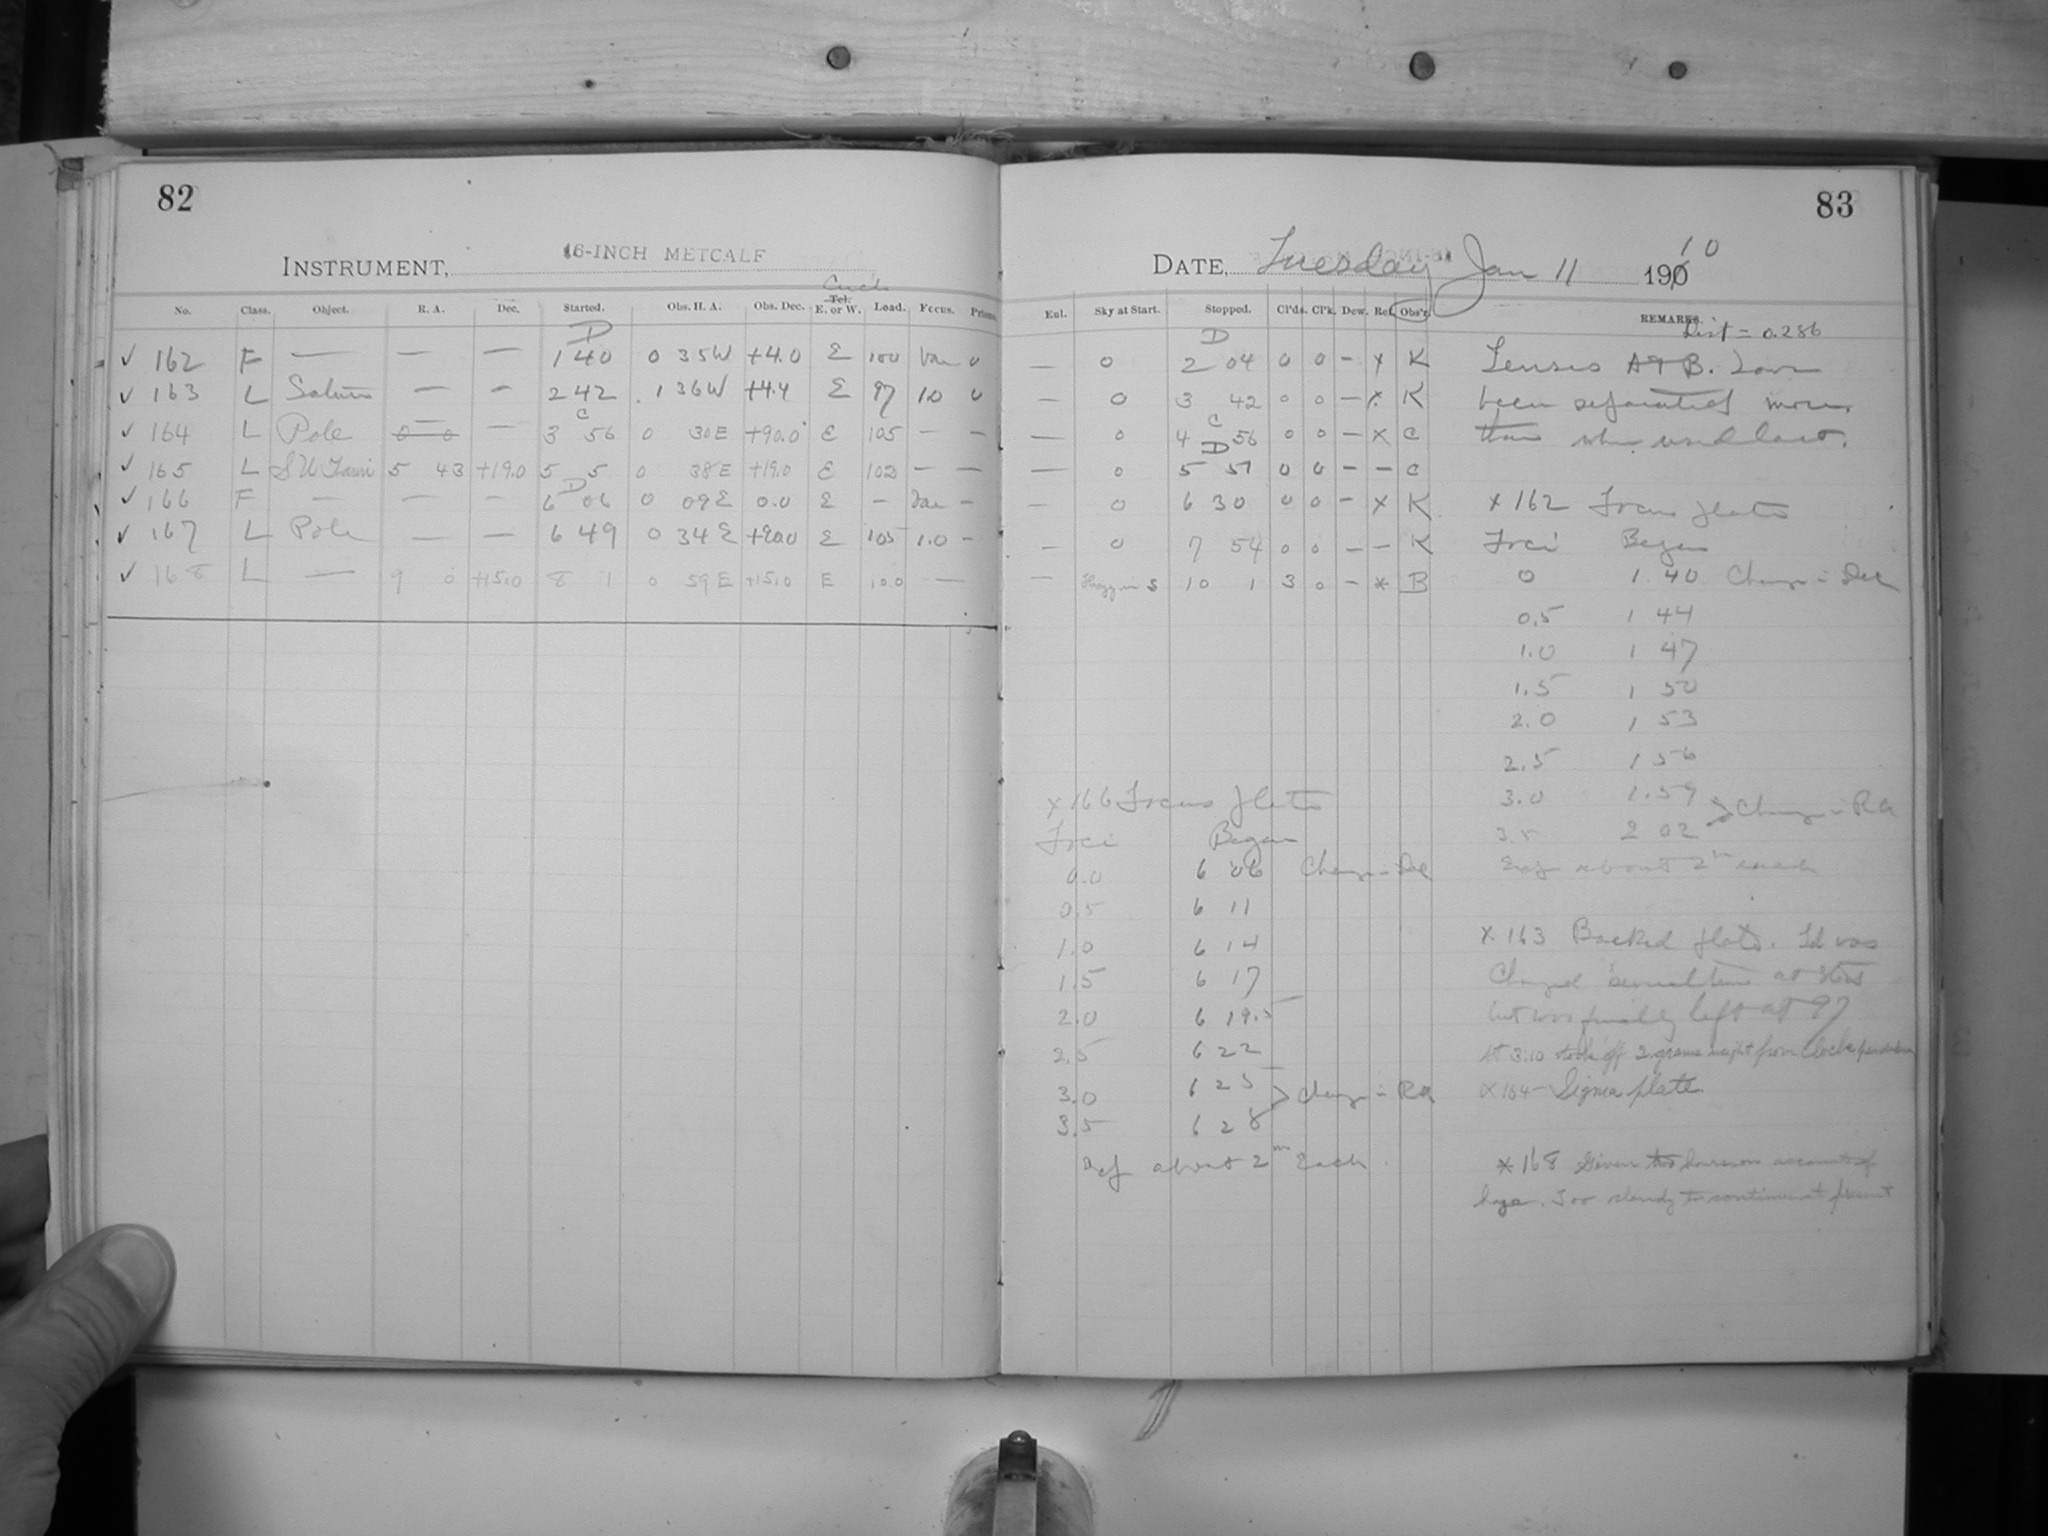 82
INSTRUMENT, 16-INCH METCALF
Circle
No. Class. Object. R. A. Dec. Started. Obs. H. A. Obs. Dec. Tel. E. or W. Load. Focus. Prisms.
D
✓ 162 F — — — 1 40 0 35 W +4.0 E 100 Var 0
✓ 163 L Saturn — — 2 42 1 36 W +4.4 E 97 1.0 0
C
✓ 164 L Pole 0 0 — 3 56 0 30 E +90.0 E 105 — —
✓ 165 L SU Tauri 5 43 +19.0 5 5 0 38 E +19.0 E 102 — —
D
✓ 166 F — — — 6 06 0 09 E 0.0 E — Var —
✓ 167 L Pole — — 6 49 0 34 E +90.0 E 105 1.0 —
✓ 168 L — 9 0 +15.0 8 1 0 59 E +15.0 E 100 —
83
DATE, Tuesday Jan 11 1910
Eul. Sky at Start. Stopped. Cl'ds. Cl'k. Dew. Ref. Obs'r. REMARKS.
Dist = 0.286
D
— 0 2 04 0 0 – x K
— 0 3 42 0 0 – x K
C
— 0 4 56 0 0 – x C
D
— 0 5 51 0 0 – – C
— 0 6 30 0 0 – x K
— 0 7 54 0 0 – – K
— Hazy in S 10 1 3 0 – * B
Lenses A & B. have
been separated more
than when used last.
x 162 Focus plate
Foci Began
0 1.40 Change in Dec
0.5 1 44
1.0 1 47
1.5 1 50
2.0 1 53
2.5 1 56
3.0 1.59
3.5 2 02 > Change in RA
Exp about 2m each
x 166 Focus plate
Foci Began
0.0 6 06 Change in Dec
0.5 6 11
1.0 6 14
1.5 6 17
2.0 6 19.5
2.5 6 22
3.0 6 25
3.5 6 28 > change in RA
Exp about 2m Each.
x 163 Backed plate. Ld was
Changed several times at start
but was finally left at 97
At 3.10 took off 2 grams weight from clock pendulum
x 164 – Sigma plate.
* 168 Given two hours on account of
haze. Too cloudy to continue at present